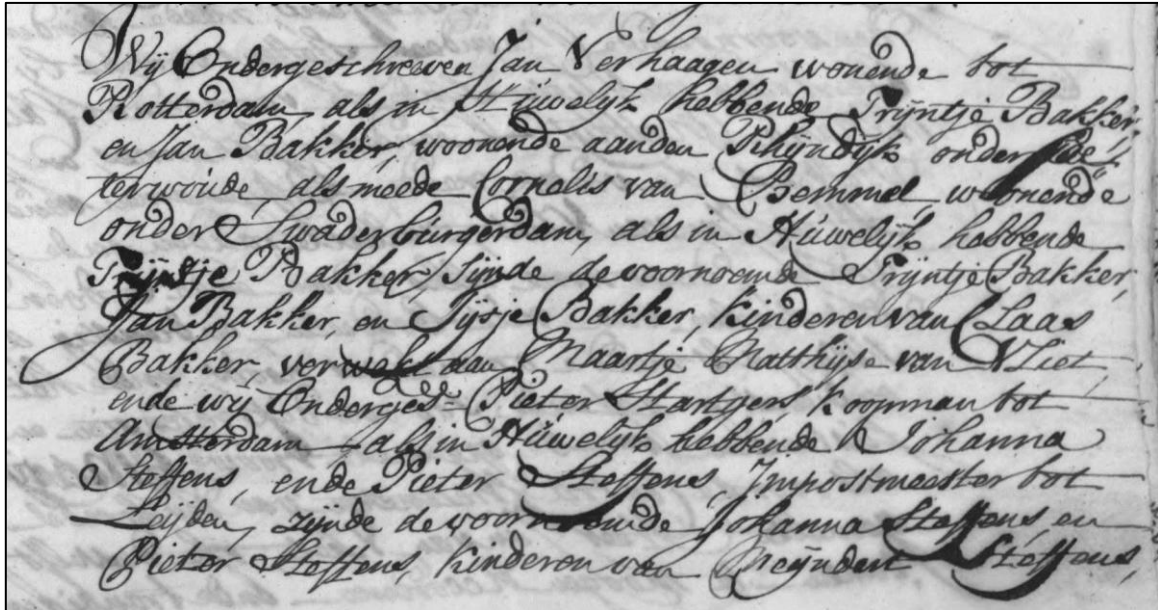 Wij Ondergeschreeven Jan Verhaagen wonende tot
Rotterdam, als in Hüwelijk hebbende Trijntje Bakker,
en Jan Bakker, woonende aanden Rhijndijk onder Soe,,
terwoüde, als meede Cornelis van Bemmel, woonende
onder Swaderbürgerdam, als in Hüwelijk hebbende
Tijsje Bakker, sijnde de voornoemde Trijntje Bakker,
Jan Bakker, en Tijsje Bakker, kinderen van Claas
Bakker, verwekt aan Maartje Matthijse van Vliet,
ende wij Onderges: Pieter Startgers koopman tot
Amsterdam als in Hüwelijk hebbende Johanna
Steffens, ende Pieter Steffens, Impostmeester tot
Leijden, zijnde de voornoemde Johanna Steffens, en
Pieter Steffens, kinderen van Meijndert Steffens,